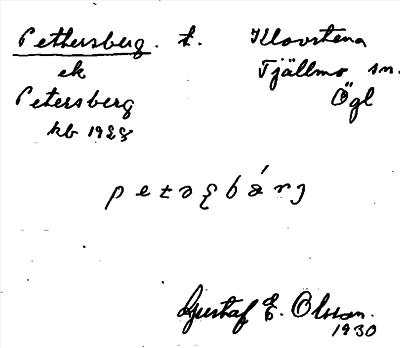 Pethersberg. t. Klovstena
ek Tjällmo sn.
Petersberg Ögl
kb 1928
Gustaf E. Olsson.
1930